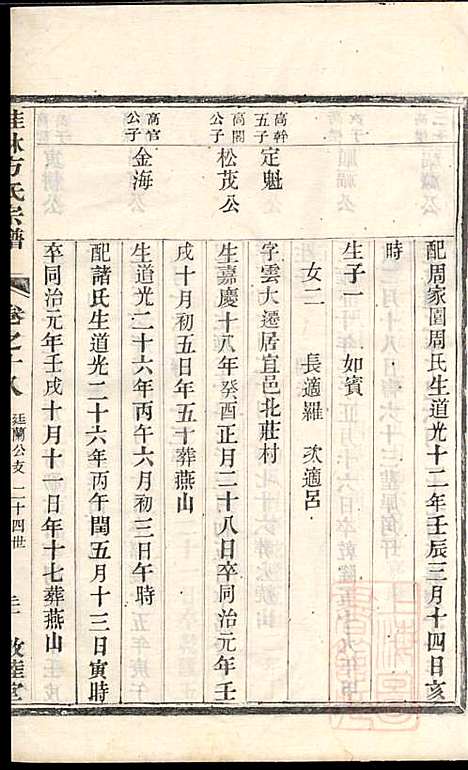 配周家園周氏生道光十二年壬辰三月十四日亥
時
生子一 如賓
女二 長適羅 次適呂
高幹五子 定魁
字雲大遷居宜邑北莊村
高閣公子 松茂公
生嘉慶十八年癸酉正月二十八日卒同治元年壬
戌十月初五日年五十葬燕山
高官公子 金海
生道光二十六年丙午六月初三日午時
配諸氏生道光二十六年丙午閏五月十三日寅時
卒同治元年壬戌十月十一日年十七葬燕山
桂林方氏宗譜 卷之十八 廷蘭公支 二十四世 敦睦堂